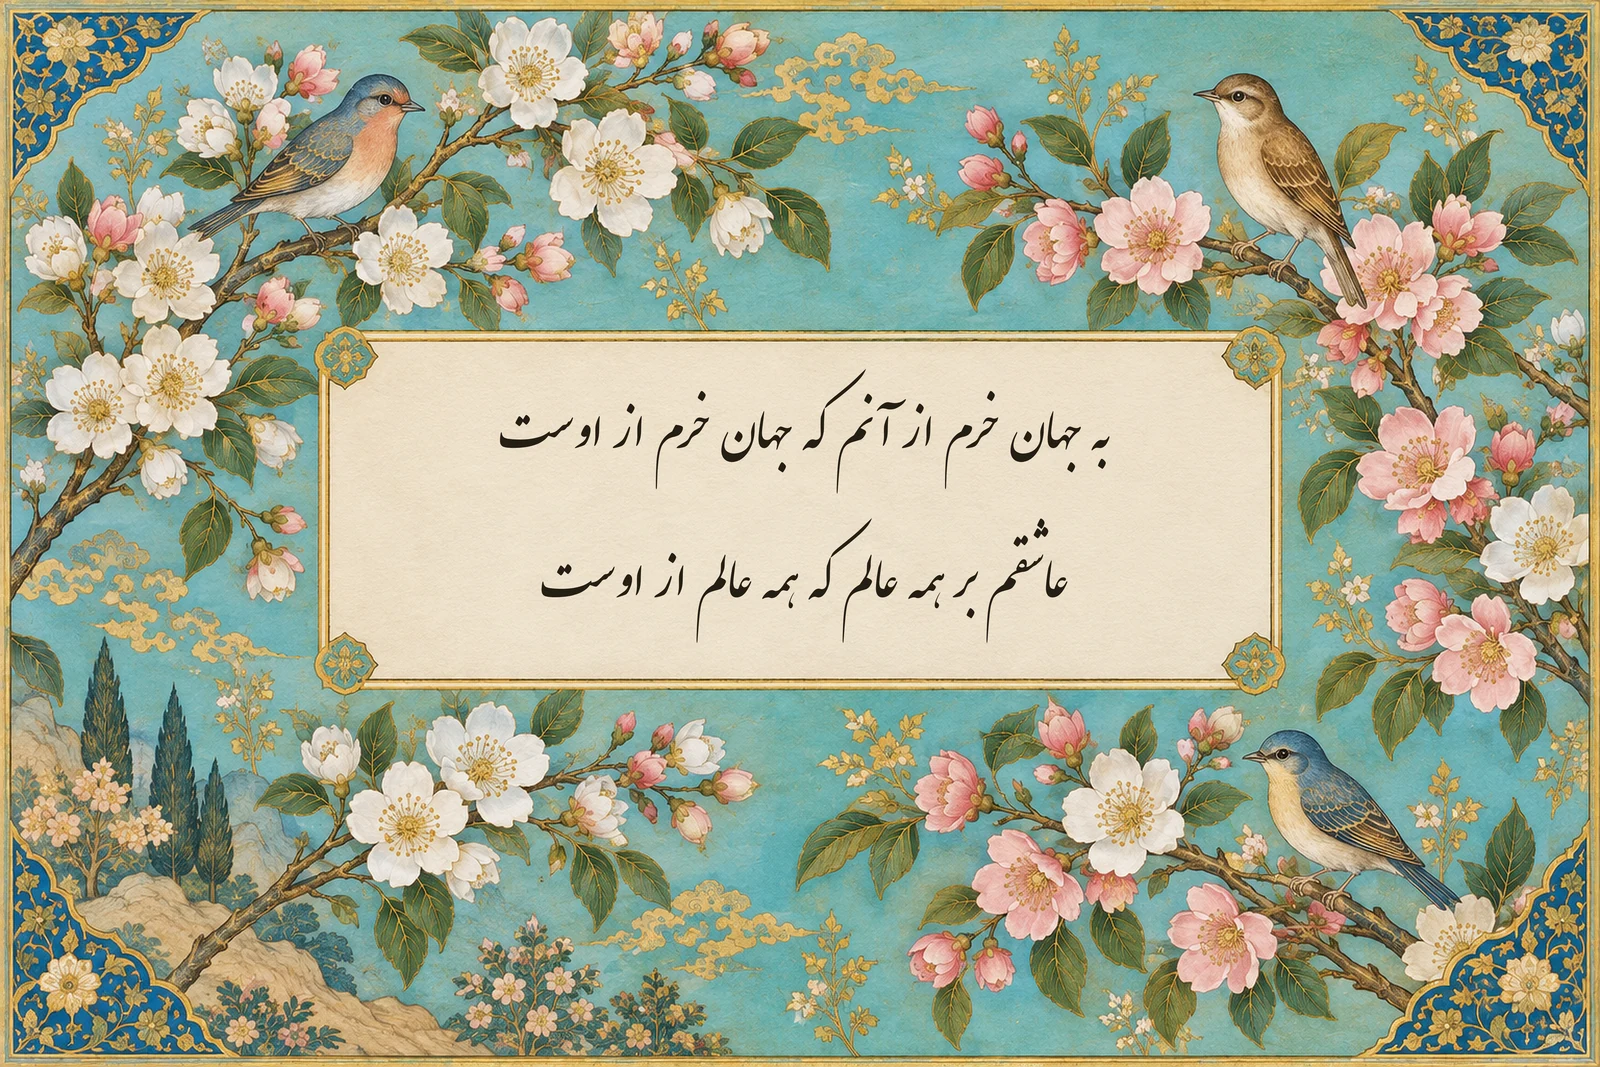 به جهان خرم از آنم که جهان خرم از اوست
عاشقم بر همه عالم که همه عالم از اوست